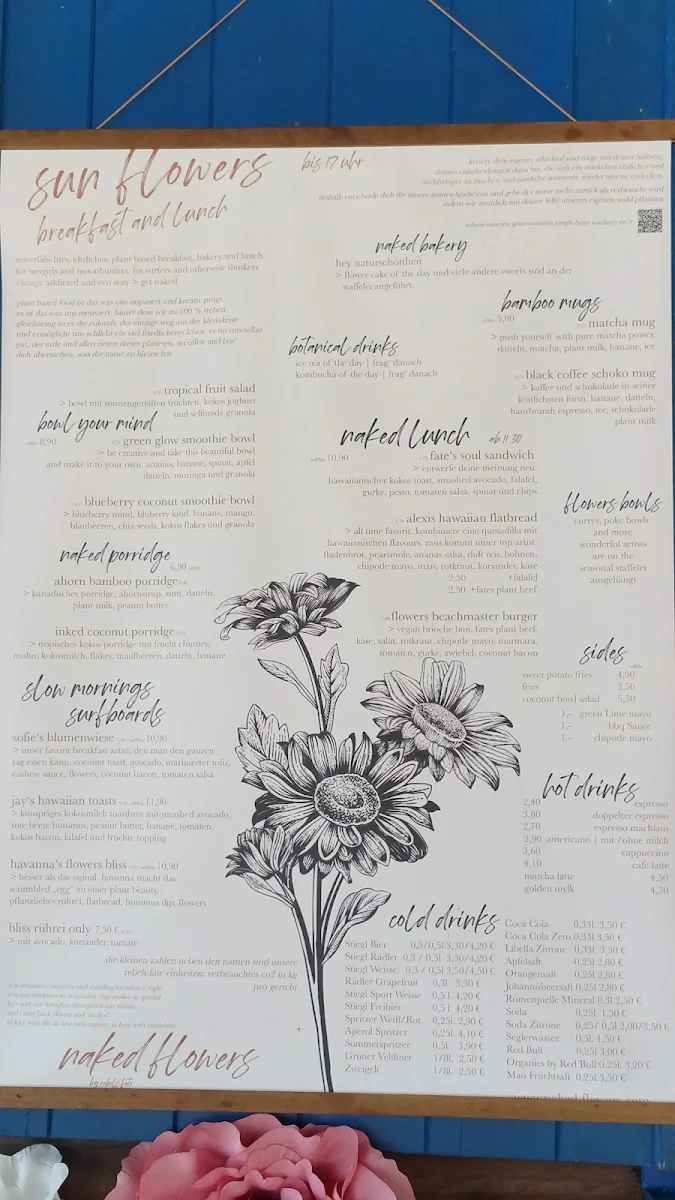 sun flowers
breakfast and lunch
bis 17 uhr
kreiere dein eigenes schicksal und trage mit deiner haltung,
deinen entscheidungen dazu bei, die welt ein stückchen ehrlicher und
nachhaltiger zu machen und sinnliche momente wieder neu zu entdecken.
deshalb entscheide dich für unsere naturschönheiten und gebe der natur mehr zurück als verbraucht wird
indem wir zusätzlich mit deiner hilfe unseren eigenen wald pflanzen
schaue unseren gemeinsamen jungle beim wachsen zu >
unverfälschtes, ehrliches, plant based breakfast, bakery and lunch.
for sungirls and moonhunters. for surfers and otherwise thinkers
vintage addicted and eco sexy > get naked
plant based food ist das was uns inspiriert und kreativ prägt
es ist das was uns motiviert. hinter dem wir zu 100 % stehen.
gleichzeitig ist es die zukunft, der einzige weg aus der klimakrise
und ermöglicht uns schlicht ein viel friedlicheres leben. es tut uns selbst
gut, der erde und allen tieren dieses planeten. sei offen und lass'
dich überraschen, was die natur zu bieten hat
naked bakery
hey naturschönheit
> flower cake of the day und viele andere sweets sind an der
staffelei angeführt.
bamboo mugs
5,90
matcha mug
> push yourself with pure matcha power.
datteln, matcha, plant milk, banane, ice
black coffee schoko mug
> kaffee und schokolade in seiner
köstlichsten form. banane, datteln,
hausbrandt espresso, ice, schokolade
plant milk
botanical drinks
ice tea of the day | frag' danach
kombucha of the day | frag' danach
tropical fruit salad
> bowl mit sonnengereiften früchten, kokos joghurt
und selfmade granola
bowl your mind
8,90
green glow smoothie bowl
> be creative and take this beautiful bowl
and make it to your own. ananas, banane, spinat, apfel
datteln, moringa und granola
blueberry coconut smoothie bowl
> blueberry mind, bluberry kind. banane, mango,
blaubeeren, chia seeds, kokos flakes und granola
naked lunch ab 11 30
10,90
fate's soul sandwich
> entwerfe deine meinung neu.
hawaiianischer kokos toast, smashed avocado, falafel,
gurke, pesto, tomaten salsa, spinat und chips
alexis hawaiian flatbread
> all time favorit. kombiniere eine quesadilla mit
hawaiianischen flavours. raus kommt unser top artist.
fladenbrot, pearsmole, ananas salsa, duft reis, bohnen,
chipotle mayo, mais, rotkraut, koriander, käse
2,50 +falafel
2,50 +fates plant beef
flowers beachmaster burger
> vegan brioche bun, fates plant beef,
käse, salat, rotkraut, chipotle mayo, marinara,
tomaten, gurke, zwiebel, coconut bacon
flowers bowls
currys, poke bowls
and more
wonderful artists
are on the
seasonal staffelei
ausgehängt
naked porridge
6,90
ahorn bamboo porridge
> kanarisches porridge, ahornsirup, zimt, datteln,
plant milk, peanut butter
inked coconut porridge
> tropisches kokos porridge mit frucht chutney,
mohn, kokosmilch, flakes, maulbeeren, datteln, banane
sides
sweet potato fries 4,90
fries 3,50
coconut bowl salad 5,50
1,- green Lime mayo
1,- bbq Sauce
1,- chipotle mayo
slow mornings
surfboards
sofie's blumenwiese 10,90
> unser favorit breakfast artist, den man den ganzen
tag essen kann. coconut toast, avocado, marinierter tofu,
cashew sauce, flowers, coconut bacon, tomaten salsa
jay's hawaiian toasts 11,90
> knuspriges kokosmilch toastbrot mit smashed avocado,
rote beete hummus, peanut butter, banane, tomaten,
kokos bacon, falafel und früchte topping
havanna's flowers bliss 10,90
> besser als das oginal. havanna macht das
scrambled „egg" zu einer plant beauty.
pflanzliches rührei, flatbread, hummus dip, flowers
bliss rührei only 7,50 €
> mit avocado, koriander, tomate
die kleinen zahlen neben den namen sind unsere
rebels fate einheiten: verbrauchtes co2 in kg
pro gericht
hot drinks
2,40 espresso
3,80 doppelter espresso
2,70 espresso machiato
2,90 americano | mit /ohne milch
3,60 cappuccino
4,10 cafe latte
matcha latte 4,50
golden mylk 4,50
cold drinks
Stiegl Bier 0,3/0,5l 3,30/4,20 €
Stiegl Radler 0,3 / 0,5l 3,30/4,20 €
Stiegl Weisse 0,3 / 0,5l 3,50/4,50 €
Radler Grapefruit 0,3l 3,30 €
Stiegl Sport Weisse 0,5 l 4,20 €
Stiegl Freibier 0,5 l 4,20 €
Spritzer Weiß/Rot 0,25l 2,90 €
Aperol Spritzer 0,25l 4,10 €
Sommerspritzer 0,5l 3,90 €
Grüner Veltliner 1/8l 2,50 €
Zweigelt 1/8l 2,50 €
Coca Cola 0,33l 3,50 €
Coca Cola Zero 0,33l 3,50 €
Libella Zitrone 0,33l 3,30 €
Apfelsaft 0,25l 2,80 €
Orangensaft 0,25l 2,80 €
Johannisbeersaft 0,25l 2,80 €
Römerquelle Mineral 0,3l 2,50 €
Soda 0,25l 1,50 €
Soda Zitrone 0,25/ 0,5l 2,00/3,50 €
Seglerwasser 0,5l 1,50 €
Red Bull 0,25l 3,00 €
Organics by Red Bull 0,25l 3,20 €
Mao Fruchtsaft 0,25l 3,50 €
naked flowers
by rebels fate
www.naked-flowers.com